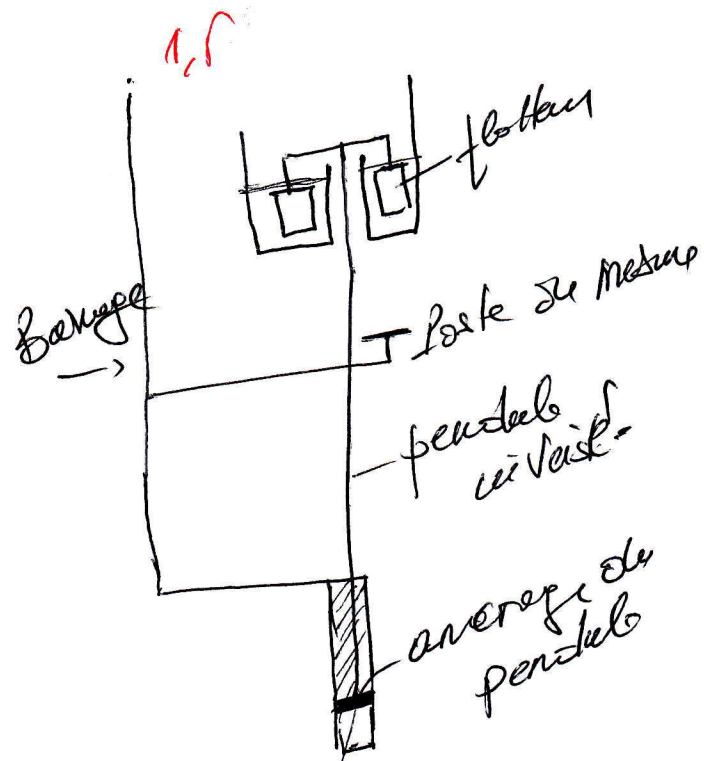 1,5
flotteur
Barrage
Poste de mesure
pendule
inversé
ancrage du
pendule